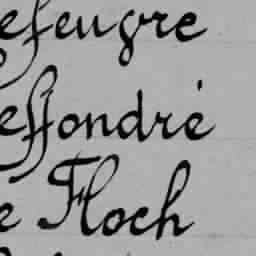 efeuvre
effondré
e Floch